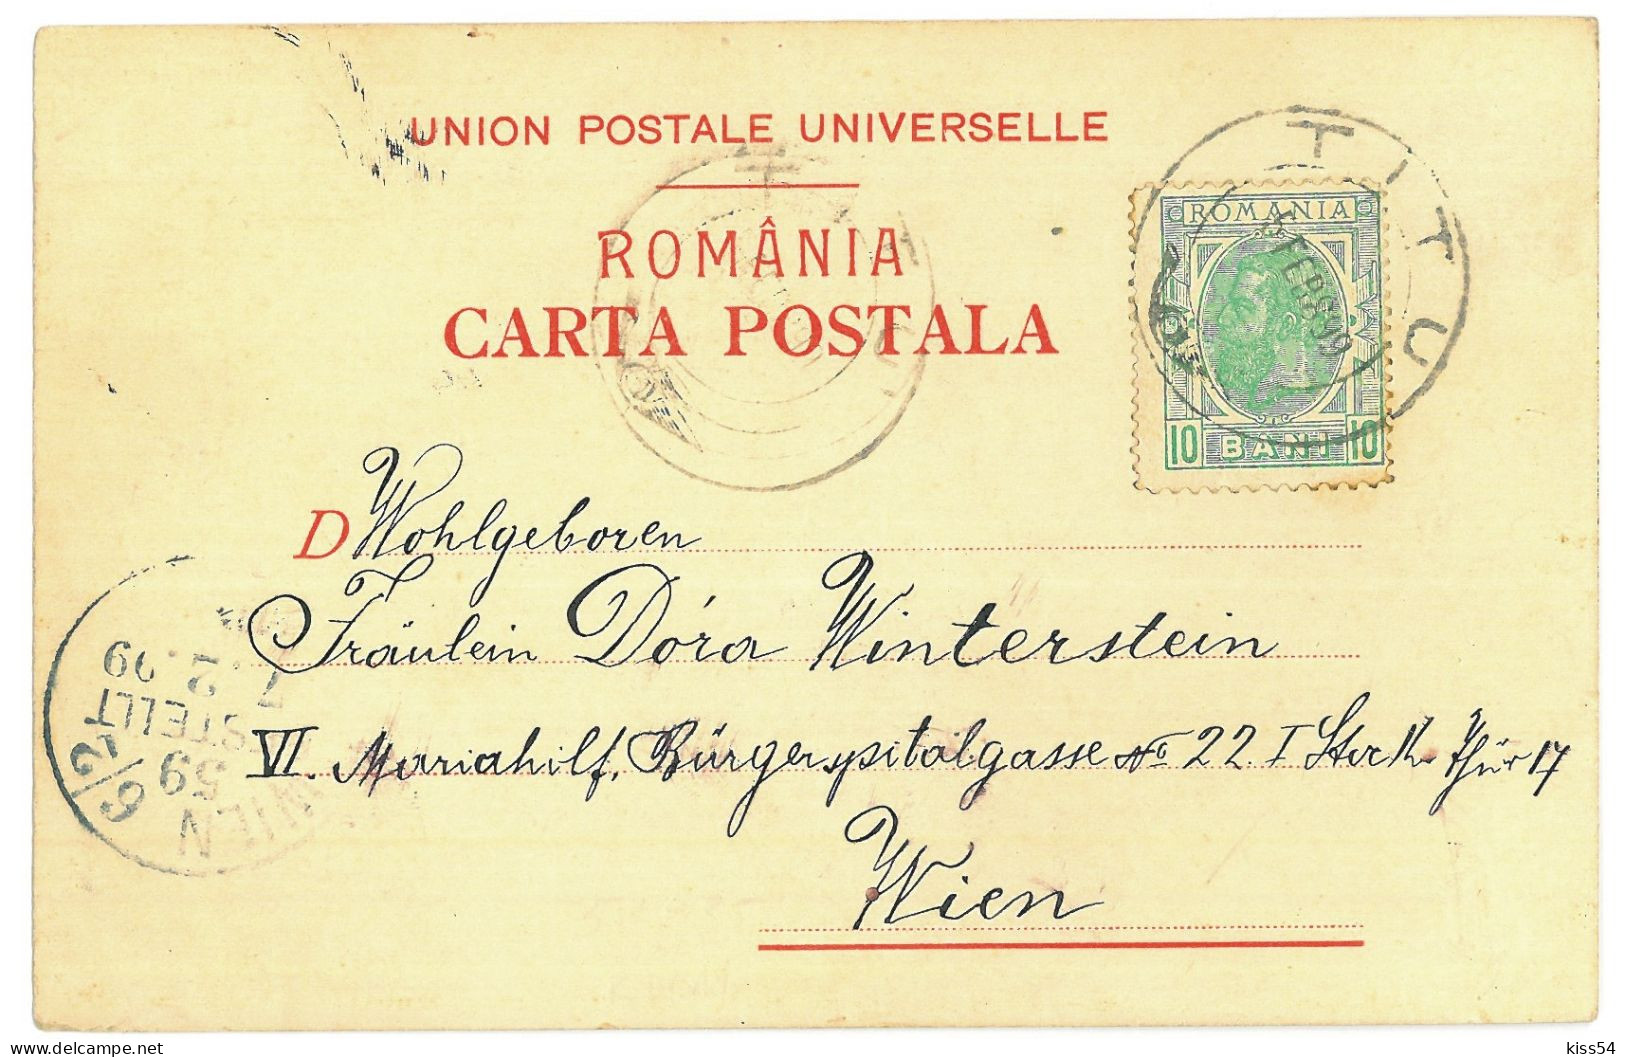 UNION POSTALE UNIVERSELLE
ROMÂNIA
CARTA POSTALA
TITU
ROMANIA
FEB 99
10 BANI 10
D Wohlgeboren
Fräulein Dóra Winterstein
VI. Mariahilf, Bürgerspitalgasse No 22. I Stock Thür 17
Wien
WIEN
6/2
59
BESTELLT
7. 2. 99
kiss54